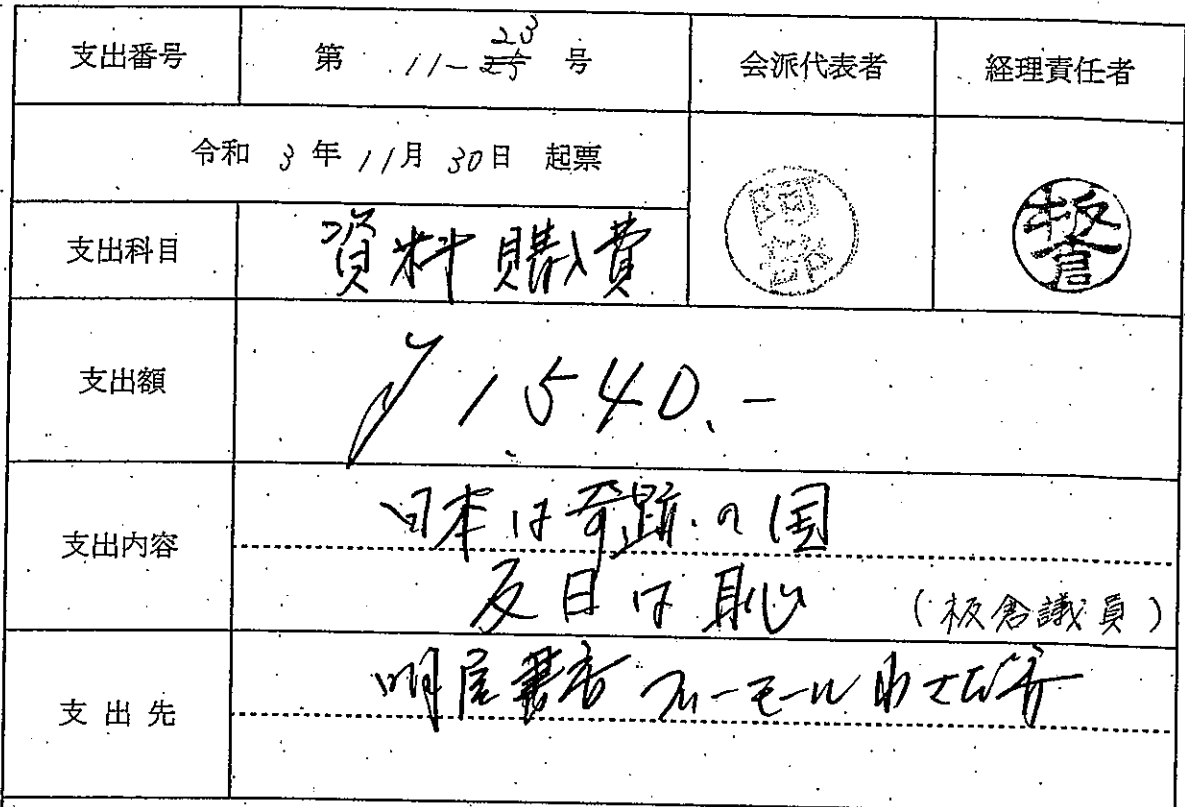 支出番号 第 11-23 号 会派代表者 経理責任者
令和 3 年 11月 30日 起票
支出科目 資料購入費
板倉
支出額 ¥1540.-
支出内容 日本は奇跡の国
反日は恥 (板倉議員)
支出先 明屋書店